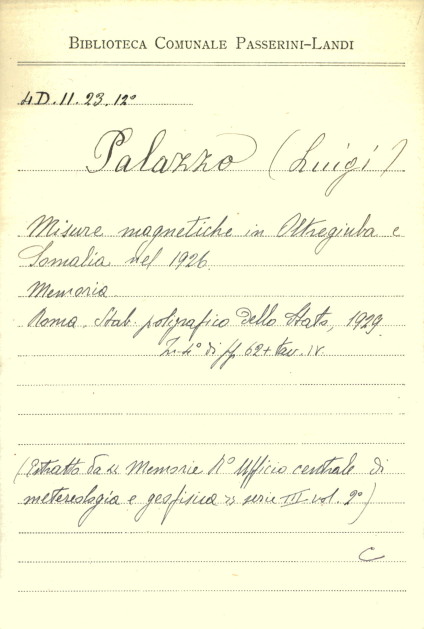 BIBLIOTECA COMUNALE PASSERINI-LANDI
4D.11.23.12°
Palazzo (Luigi)
Misure magnetiche in Oltregiuba e
Somalia nel 1926
Memoria
Roma. Stab. poligrafico dello Stato, 1929
In 4° di pp 62 + tav. IV
(Estratto da << Memorie R° Ufficio centrale di
metereologia e geofisica >> serie III vol. 2°)
C